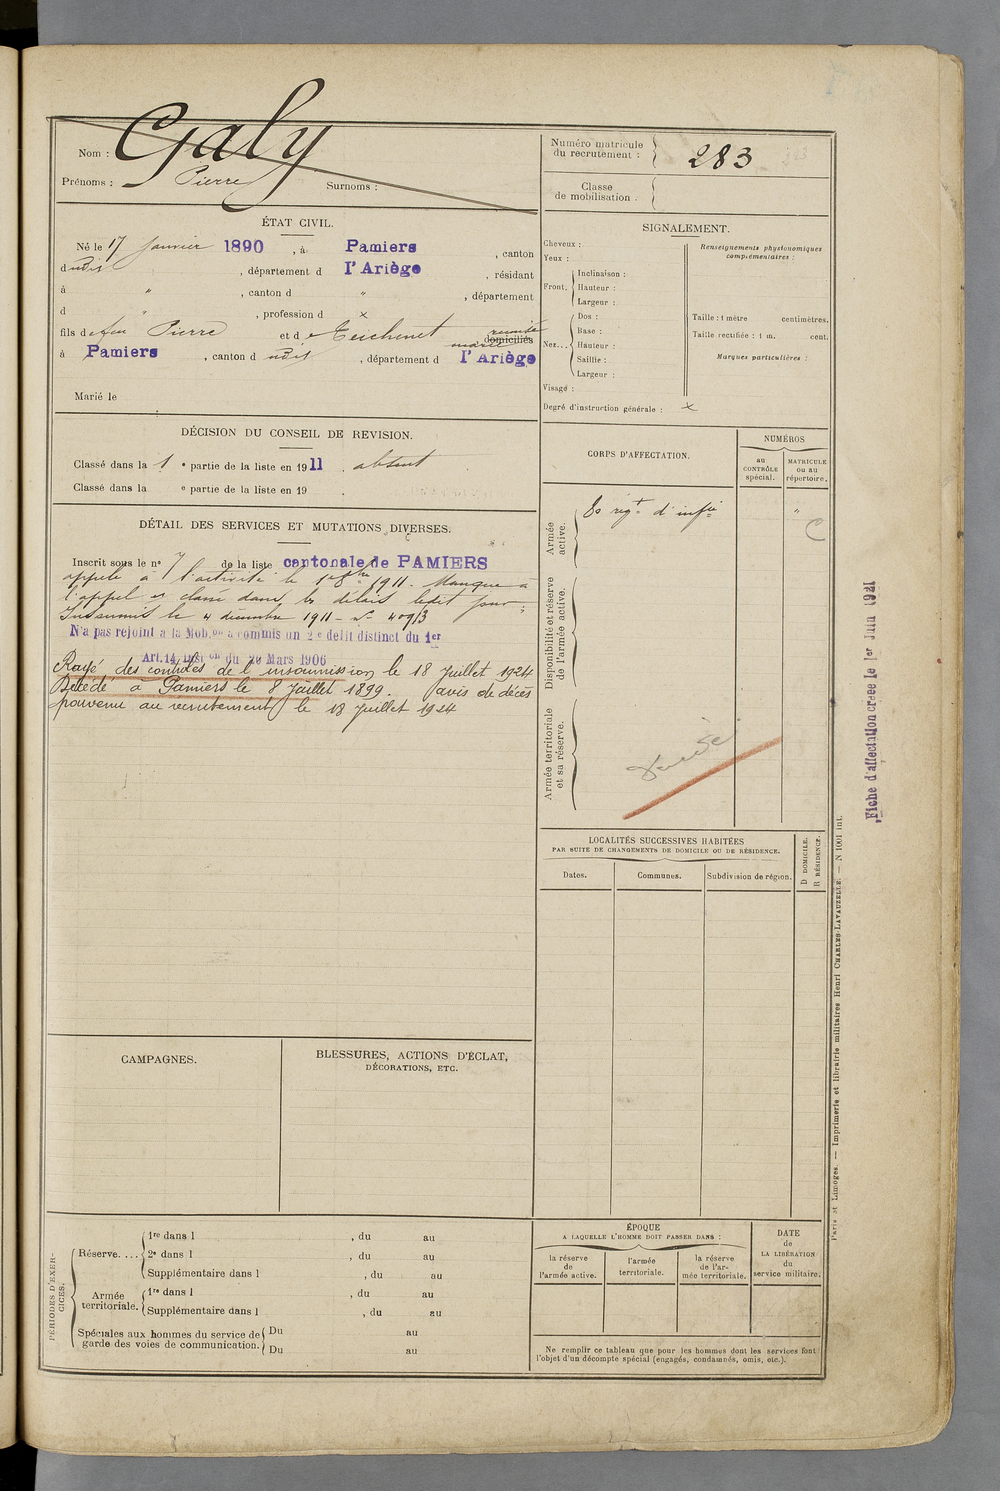 Nom : Galy
Prénoms : Pierre Surnoms :
Numéro matricule du recrutement : 283
Classe de mobilisation :
ÉTAT CIVIL.
Né le 17 Janvier 1890, à Pamiers, canton
dudit, département d l'Ariège, résidant
à ", canton d ", département
d ", profession d x
fils de feu Pierre et de Teichenet mariée domiciliés
à Pamiers, canton dudit, département d l'Ariège
Marié le
SIGNALEMENT.
Cheveux :
Yeux :
Front. Inclinaison :
Hauteur :
Largeur :
Nez... Dos :
Base :
Hauteur :
Saillie :
Largeur :
Visage :
Renseignements physionomiques complémentaires :
Taille : 1 mètre centimètres.
Taille rectifiée : 1 m. cent.
Marques particulières :
Degré d'instruction générale : x
DÉCISION DU CONSEIL DE REVISION.
Classé dans la 1e partie de la liste en 1911. absent
Classé dans la e partie de la liste en 19 .
DÉTAIL DES SERVICES ET MUTATIONS DIVERSES.
Inscrit sous le n° 7 de la liste cantonale de PAMIERS
appelé à l'activité le 1er 8bre 1911. Manque à
l'appel et classé dans les délais ledit jour.
Insoumis le 4 décembre 1911 - n° 409/3
N'a pas rejoint a la Mob.on a commis un 2e delit distinct du 1er
Art. 14, Inst.on du 20 Mars 1906
Rayé des contrôles de l'insoumission le 18 Juillet 1924
Décédé à Pamiers le 8 Juillet 1899. avis de décès
parvenu au recrutement le 18 Juillet 1924
CORPS D'AFFECTATION.
NUMÉROS
au CONTRÔLE spécial.
MATRICULE ou au répertoire.
Armée active.
80 régt d'infie "
C
Disponibilité et réserve de l'armée active.
Armée territoriale et sa réserve.
Fiche d'affectation créée le 1er Juin 1921
LOCALITÉS SUCCESSIVES HABITÉES
PAR SUITE DE CHANGEMENTS DE DOMICILE OU DE RÉSIDENCE.
Dates. Communes. Subdivision de région.
D DOMICILE.
R RÉSIDENCE.
CAMPAGNES.
BLESSURES, ACTIONS D'ÉCLAT,
DÉCORATIONS, ETC.
PÉRIODES D'EXERCICES.
Réserve.... 1re dans l , du au
2e dans l , du au
Supplémentaire dans l , du au
Armée territoriale. 1re dans l , du au
Supplémentaire dans l , du au
Spéciales aux hommes du service de garde des voies de communication. Du au
Du au
ÉPOQUE
A LAQUELLE L'HOMME DOIT PASSER DANS :
la réserve de l'armée active.
l'armée territoriale.
la réserve de l'armée territoriale.
DATE de LA LIBÉRATION du service militaire.
Ne remplir ce tableau que pour les hommes dont les services font
l'objet d'un décompte spécial (engagés, condamnés, omis, etc.).
Paris et Limoges. — Imprimerie et librairie militaires Henri CHARLES-LAVAUZELLE. — N 1001 int.